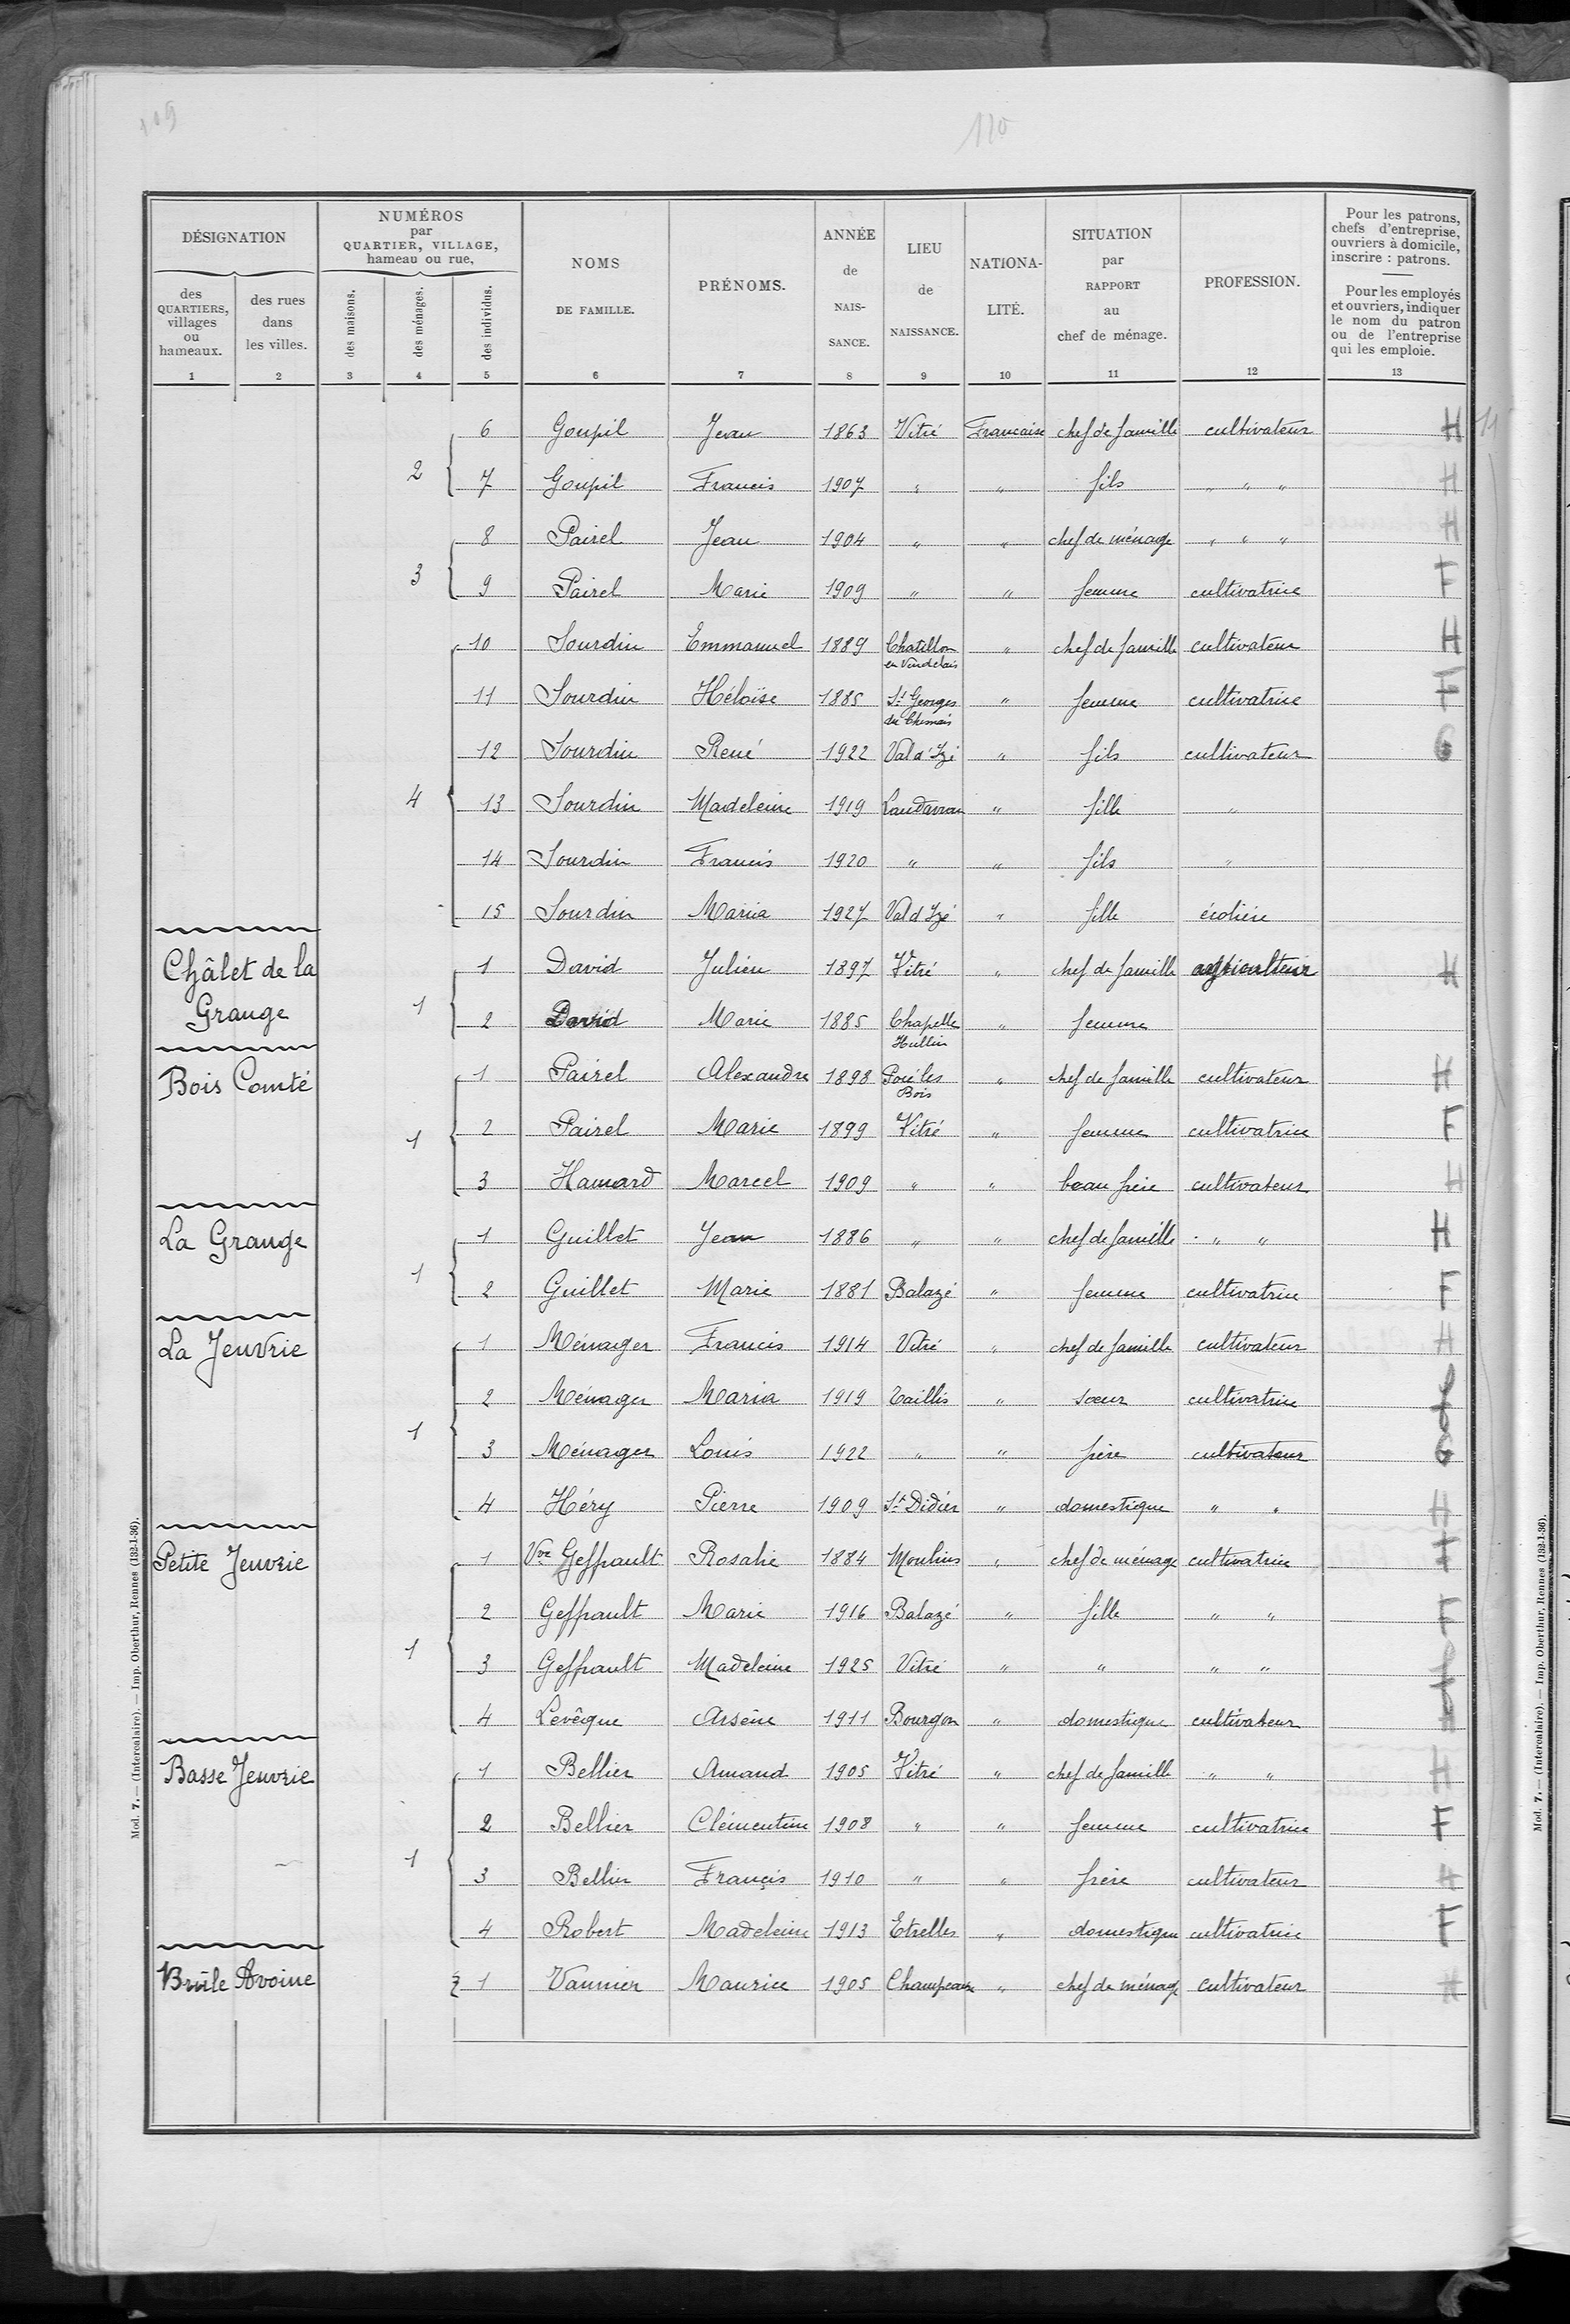 109
110
DÉSIGNATION
NUMÉROS
par
QUARTIER, VILLAGE,
hameau ou rue,
des
QUARTIERS,
villages
ou
hameaux.
des rues
dans
les villes.
des maisons.
des ménages.
des individus.
NOMS
DE FAMILLE.
PRÉNOMS.
ANNÉE
de
NAIS-
SANCE.
LIEU
de
NAISSANCE.
NATIONA-
LITÉ.
SITUATION
par
RAPPORT
au
chef de ménage.
PROFESSION.
Pour les patrons,
chefs d'entreprise,
ouvriers à domicile,
inscrire : patrons.
Pour les employés
et ouvriers, indiquer
le nom du patron
ou de l'entreprise
qui les emploie.
1 2 3 4 5 6 7 8 9 10 11 12 13
6 Goupil Jean 1863 Vitré Française chef de famille cultivateur H
2 7 Goupil Francis 1907 " " fils " " " H
8 Pairel Jean 1904 " " chef de ménage " " " H
3 9 Pairel Marie 1909 " " femme cultivatrice F
10 Sourdin Emmanuel 1889 Chatillon en Vendelais " chef de famille cultivateur H
11 Sourdin Héloïse 1885 St Georges de Chesnais " femme cultivatrice F
12 Sourdin René 1922 Val d'Izé " fils cultivateur G
4 13 Sourdin Madeleine 1919 Landavran " fille "
14 Sourdin Francis 1920 " " fils "
15 Sourdin Maria 1927 Val d'Izé " fille écolière
Châlet de la Grange 1 David Julien 1897 Vitré " chef de famille agriculteur H
1 2 David Marie 1885 Chapelle Hullin " femme
Bois Comté 1 Pairel Alexandre 1898 Pocé les Bois " chef de famille cultivateur H
1 2 Pairel Marie 1899 Vitré " femme cultivatrice F
3 Hamard Marcel 1909 " " beau frère cultivateur H
La Grange 1 Guillet Jean 1886 " " chef de famille " " " H
1 2 Guillet Marie 1881 Balazé " femme cultivatrice F
La Jeuvrie 1 Ménager Francis 1914 Vitré " chef de famille cultivateur H
2 Ménager Maria 1919 Taillis " sœur cultivatrice
1 3 Ménager Louis 1922 " " frère cultivateur G
4 Héry Pierre 1909 St Didier " domestique " " H
Petite Jeuvrie 1 Vve Geffrault Rosalie 1884 Moulins " chef de ménage cultivatrice F
2 Geffrault Marie 1916 Balazé " fille " " F
1 3 Geffrault Madeleine 1925 Vitré " " " "
4 Levêque Arsène 1911 Bourgon " domestique cultivateur H
Basse Jeuvrie 1 Bellier Amand 1905 Vitré " chef de famille " " H
2 Bellier Clémentine 1908 " " femme cultivatrice F
1 3 Bellier Françis 1910 " " frère cultivateur H
4 Robert Madeleine 1913 Etrelles " domestique cultivatrice F
Brûle Avoine 1 Vannier Maurice 1905 Champeaux " chef de ménage cultivateur H
Mod. 7. — (Intercalaire). — Imp. Oberthur, Rennes (132-1-36).
Mod. 7. — (Intercalaire). — Imp. Oberthur, Rennes (132-1-36).